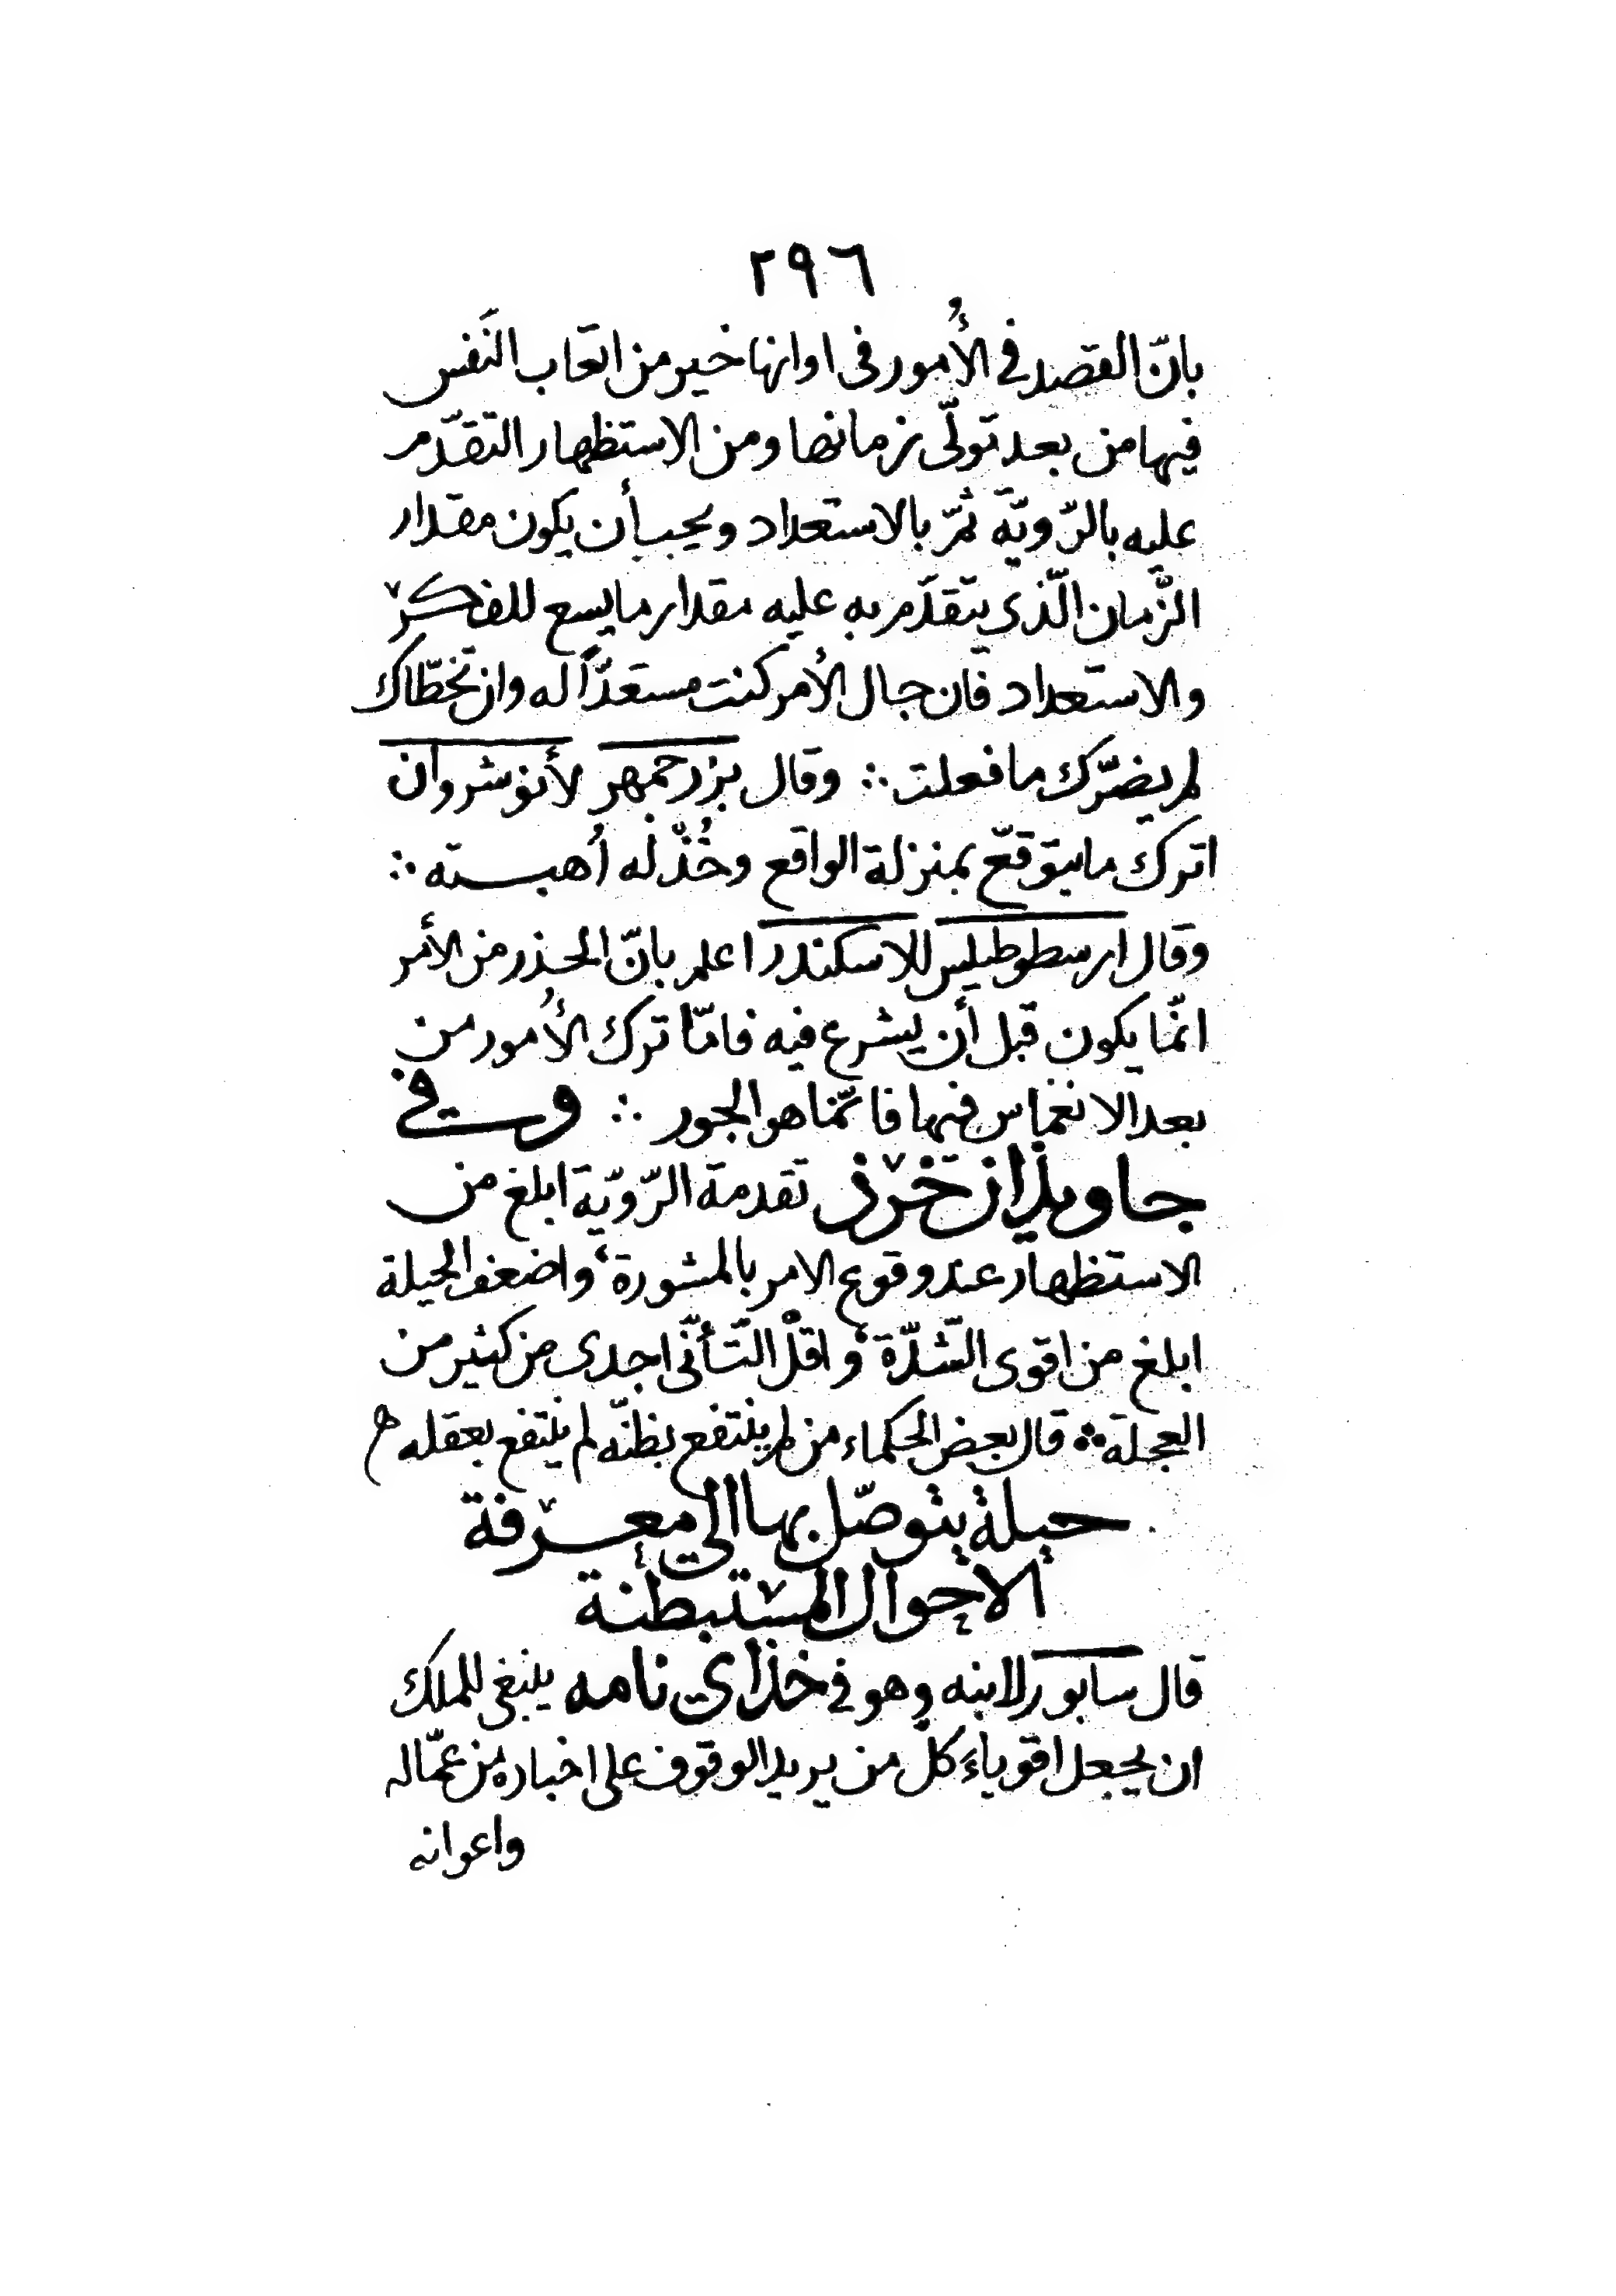 ٢٩٦
بانّ القصد في الأُمور في اوانها خير من اتعاب النَفس
فيها من بعد تولّى زمانها ومن الاستظهار التقدّم
عليه بالرّويّة ثمّ بالاستعداد ويجب أن يكون مقدار
الزّمان الّذي يتقدّم به عليه مقدار ما يسع للفكر
والاستعداد فان جال الأمر كنت مستعدّاً له وان تخطّاك
لم يضرّك ما فعلت ∴ وقال بزرجمهر لأنوشروان
اترك ما يتوقّع بمنزلة الواقع وخُذْ له أُهبته ∴
وقال ارسطوطيلس للاسكندر اعلم بانّ الحذر من الأمر
انّما يكون قبل أن يشرع فيه فامّا ترك الأُمور من
بعد الانغماس فيها فانّما هو الجور ∴ وفي
جاويذان خرذ تقدمة الرّويّة ابلغ من
الاستظهار عند وقوع الامر بالمشورة، واضعف الحيلة
ابلغ من اقوى الشّدّة، واقلّ التّأنّى اجدى من كثير من
العجلة ∴ قال بعض الحكماء من لم ينتفع بظنّه لم ينتفع بعقله
حيلة يتوصّل بها الى معرفة
الاحوال المستبطنة
قال سابور لابنه وهو في خذاي نامه ينبغى للملك
ان يجعل اقوياءَ كلّ من يريد الوقوف على اخباره من عمّاله
واعوانه